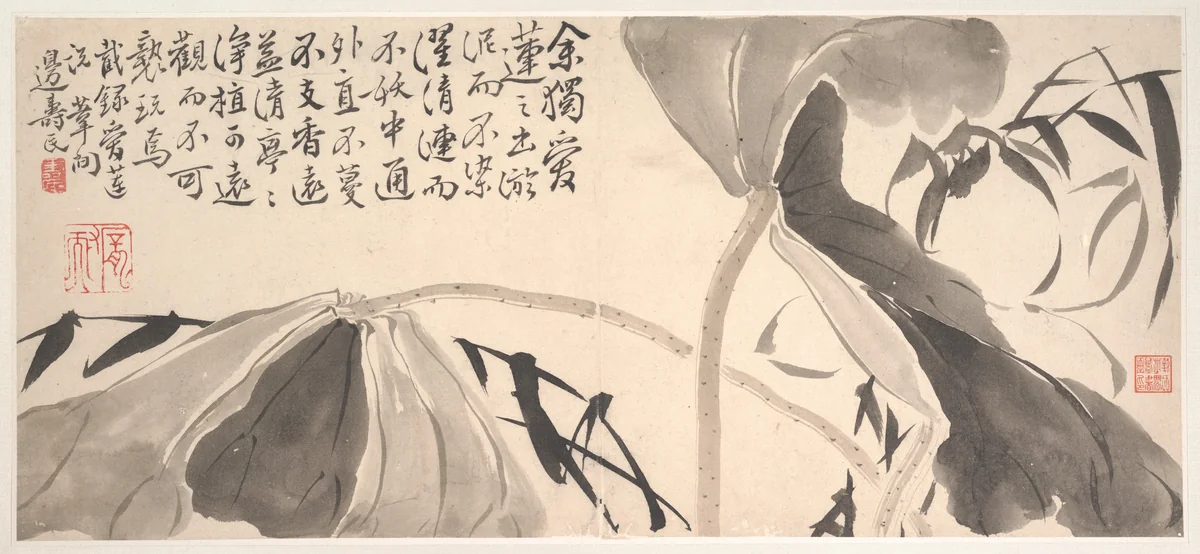 余獨愛
蓮之出淤
泥而不染
濯清漣而
不妖中通
外直不蔓
不支香遠
益清亭〻
淨植可遠
觀而不可
褻玩焉
截錄愛蓮
說 葦間
邊壽民